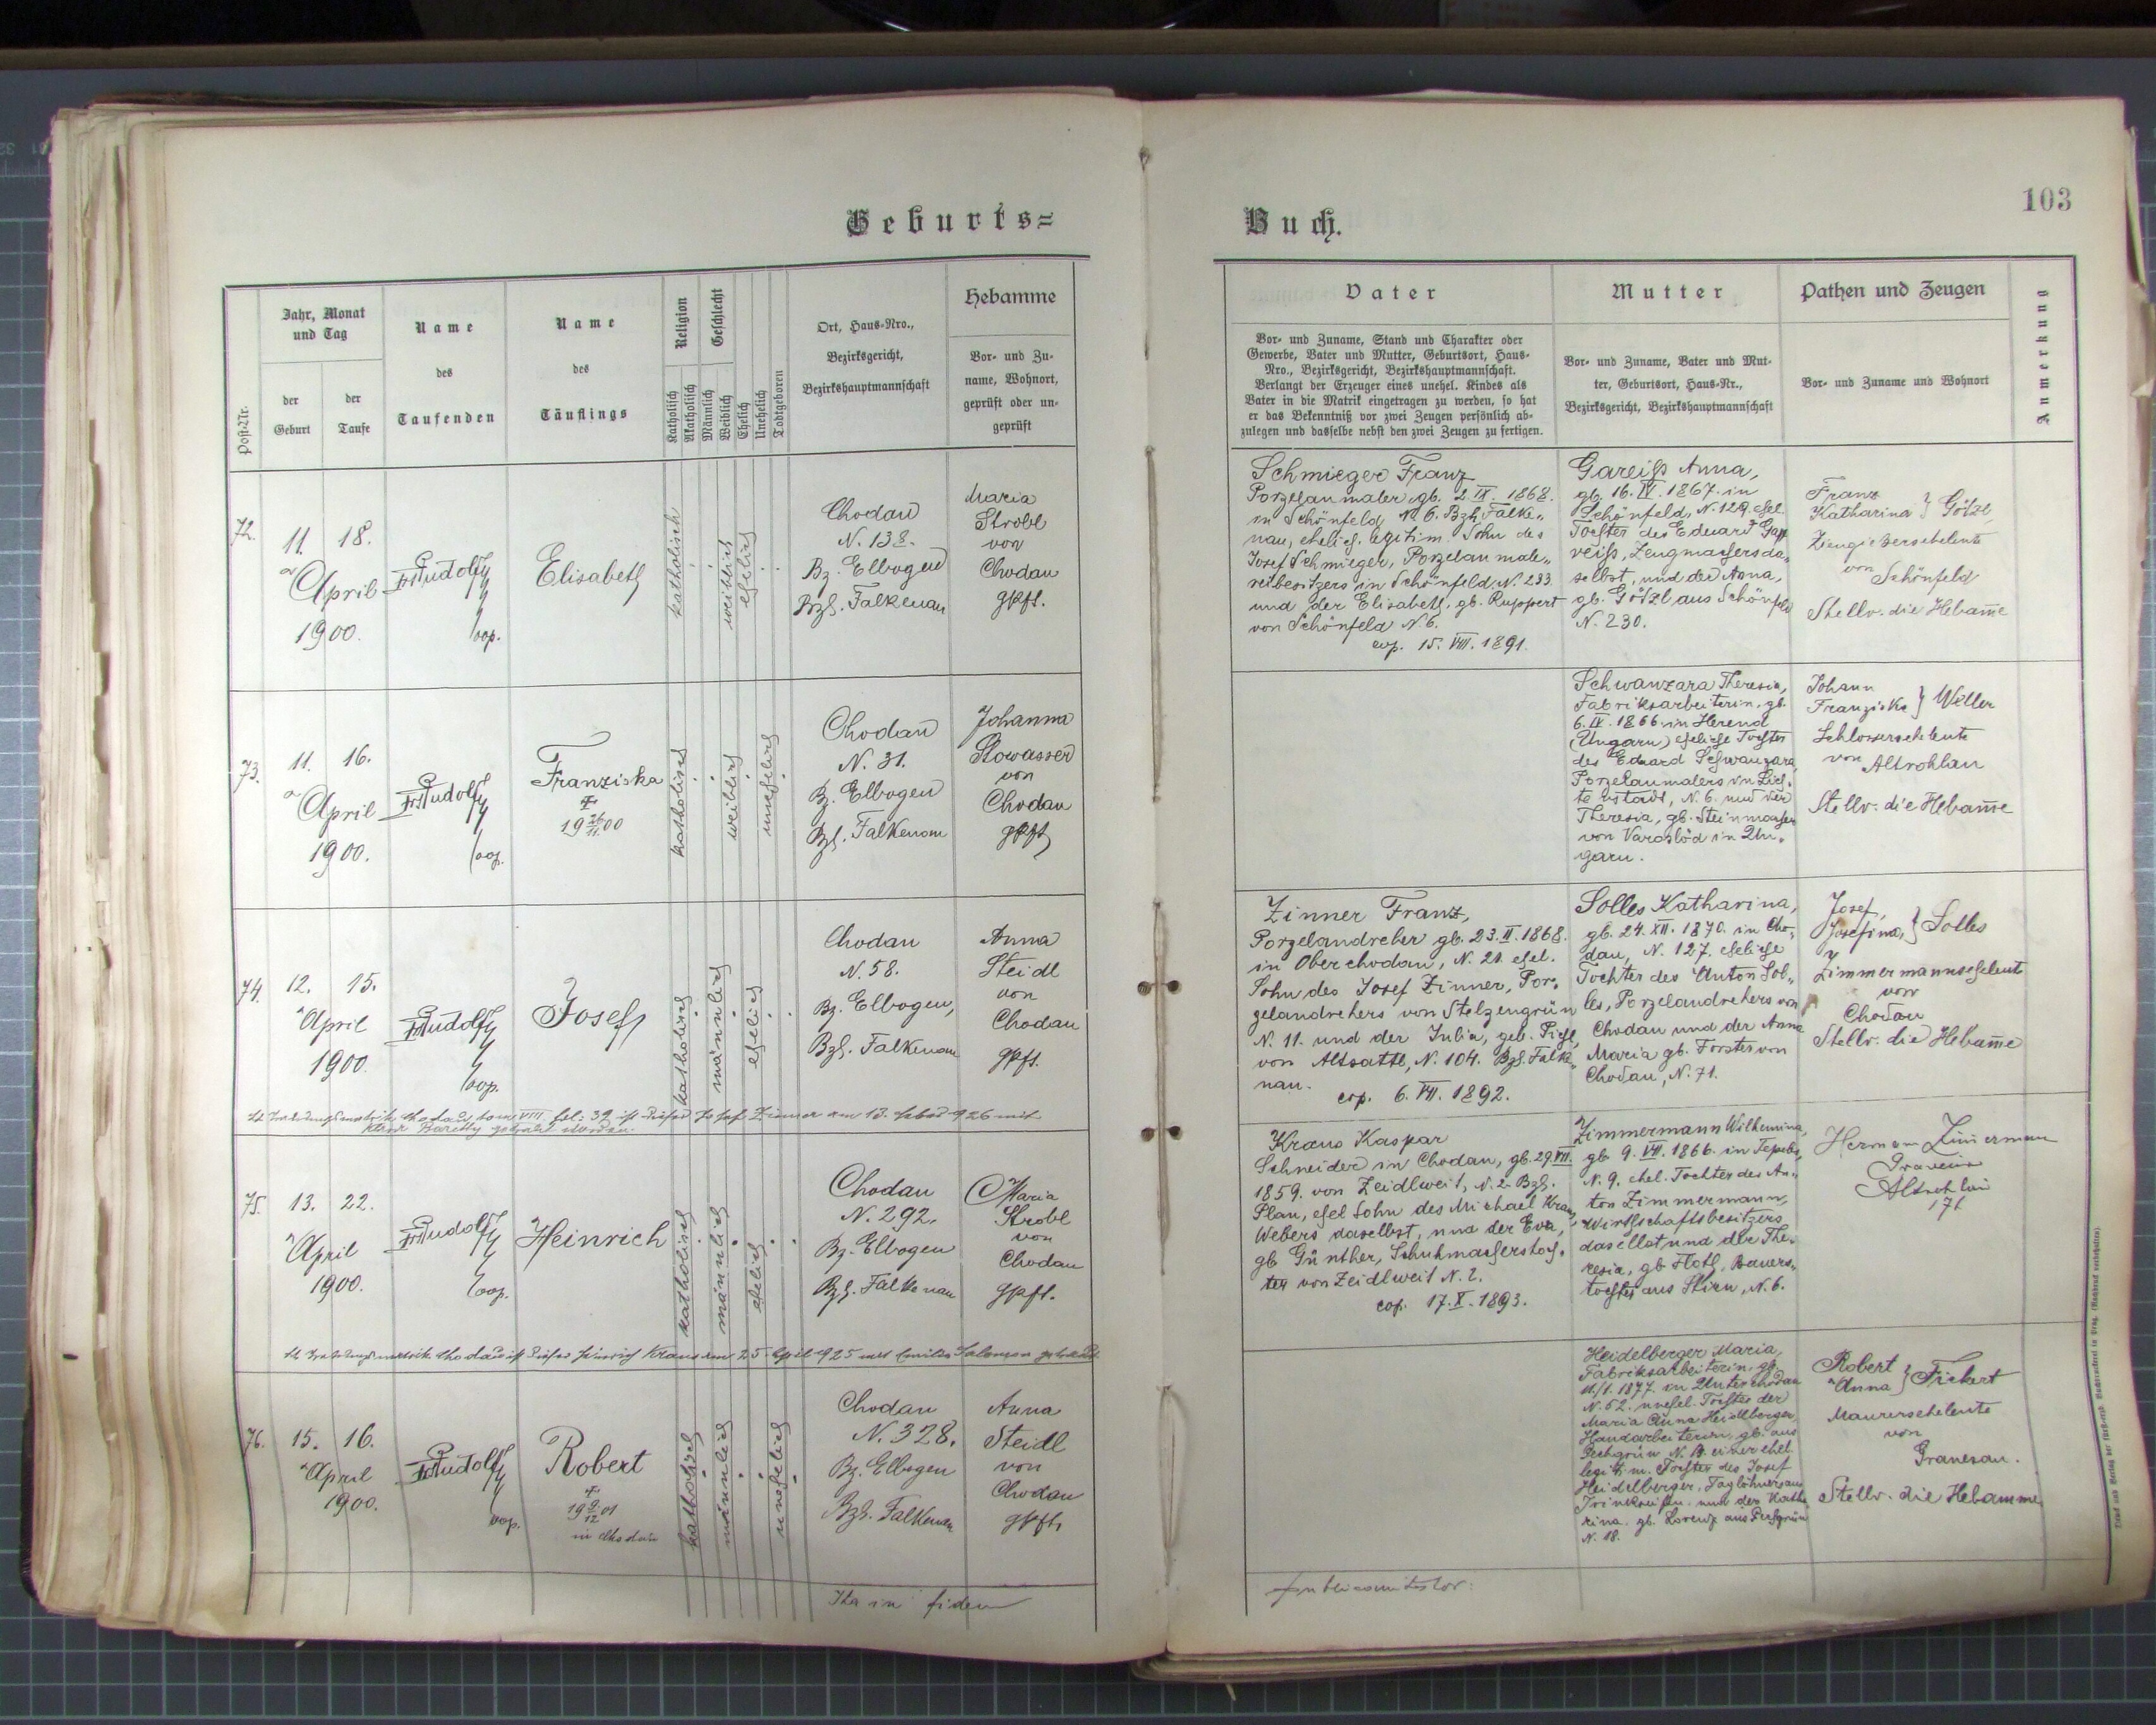 103
Geburts=
Buch.
Post-Nr.
Jahr, Monat
und Tag
der
Geburt
der
Taufe
Name
des
Taufenden
Name
des
Täuflings
Religion
Katholisch
Akatholisch
Geschlecht
Männlich
Weiblich
Ehelich
Unehelich
Todtgeboren
Ort, Haus-Nro.,
Bezirksgericht,
Bezirkshauptmannschaft
Hebamme
Vor- und Zu-
name, Wohnort,
geprüft oder un-
geprüft
Vater
Vor- und Zuname, Stand und Charakter oder
Gewerbe, Vater und Mutter, Geburtsort, Haus-
Nro., Bezirksgericht, Bezirkshauptmannschaft.
Verlangt der Erzeuger eines unehel. Kindes als
Vater in die Matrik eingetragen zu werden, so hat
er das Bekenntniß vor zwei Zeugen persönlich ab-
zulegen und dasselbe nebst den zwei Zeugen zu fertigen.
Mutter
Vor- und Zuname, Vater und Mut-
ter, Geburtsort, Haus-Nr.,
Bezirksgericht, Bezirkshauptmannschaft
Pathen und Zeugen
Vor- und Zuname und Wohnort
Anmerkung
72.
11. 18.
April
1900.
Rudolf
coop.
Elisabeth
katholisch
weiblich
ehelich
Chodau
N. 138.
Bz. Elbogen
Bzh. Falkenau
Maria
Strobl
von
Chodau
gpft.
Schmieger Franz
Porzelanmaler, gb. 2. IX. 1868.
in Schönfeld N. 6. Bzh. Falke-
nau, ehelich. legitim. Sohn des
Josef Schmieger, Porzelanmale-
reibesitzers in Schönfeld N. 233
und der Elisabeth, gb. Ruppert
von Schönfeld N. 6.
cop. 15. VIII. 1891.
Gareiß Anna,
gb. 16. IV. 1867. in
Schönfeld, N. 129, ehel.
Tochter des Eduard Ga-
reiß, Zeugmachers da-
selbst, und der Anna,
gb. Götzl aus Schönfeld
N. 230.
Franz
Katharina } Götzl,
Zinngießerseheleute
von Schönfeld
Stellv. die Hebame
73.
11. 16.
April
1900.
Rudolf
coop.
Franziska
† 19 26/11 00
katholisch
weiblich
unehelich
Chodau
N. 31.
Bz. Elbogen
Bzh. Falkenau
Johanna
Stowasser
von
Chodau
gpft
Schwanzara Theresia,
Fabriksarbeiterin, gb.
6. IX. 1866. in Herend
(Ungarn) eheliche Tochter
des Eduard Schwanzara,
Porzelanmalers von Lich-
tenstadt, N. 6. und der
Theresia, gb. Steinmacher
von Varoslöd in Un-
garn.
Johann
Franziska } Weller
Schlosserseheleute
von Altrohlau
Stellv. die Hebame
74.
12. 15.
April
1900.
Rudolf
coop.
Josef
katholisch
männlich
ehelich
Chodau
N. 58.
Bz. Elbogen,
Bzh. Falkenau
Anna
Steidl
von
Chodau
gpft.
Zinner Franz,
Porzelandreher gb. 23. II. 1868.
in Oberchodau, N. 21. ehel.
Sohn des Josef Zinner, Por-
zelandrehers von Stelzengrün
N. 11. und der Julia, geb. Pichl,
von Altsattl, N. 104. Bzh. Falke-
nau.
cop. 6. VII. 1892.
Solles Katharina,
gb. 24. XII. 1870. in Cho-
dau, N. 127. eheliche
Tochter des Anton Sol-
les, Porzelandrehers von
Chodau und der Anna
Maria gb. Forster von
Chodau, N. 71.
Josef,
Josefina, } Solles
Zimmermannseheleute
von
Chodau
Stellv. die Hebame
Chodau tom VIII fol: 39 ist dieser Josef Zinner am 13. 1926 mit
75.
13. 22.
April
1900.
Rudolf
coop.
Heinrich
katholisch
männlich
ehelich
Chodau
N. 292.
Bz. Elbogen
Bzh. Falkenau
Maria
Strobl
von
Chodau
gpft.
Kraus Kaspar
Schneider in Chodau, gb. 29. VII.
1859. von Zeidlweit, N. 2. Bzh.
Plan, ehel Sohn des Michael Kraus,
Webers daselbst, und der Eva,
gb Günther, Schuhmacherstoch-
ter von Zeidlweit N. 2.
cop. 17. X. 1893.
Zimmermann Wilhemina,
gb 9. VII. 1866. in
N. 9. ehel. Tochter des An-
ton Zimmermann,
Wirthschaftsbesitzers
daselbst und der The-
resia, gb. Hotl, Bauers-
tochter aus Stirn, N. 6.
Herman Zimerman
Graveur
Altrohlau
171
Chodau ist dieser Heinrich Kraus am 25. April 1925 mit Emilia Salomon getraut
76.
15. 16.
April
1900.
Rudolf
coop.
Robert
† 19 9/12 01
in Chodau
katholisch
männlich
unehelich
Chodau
N. 328.
Bz. Elbogen
Bzh. Falkenau
Anna
Steidl
von
Chodau
gpft.
Heidelberger Maria,
Fabriksarbeiterin, gb.
11/1. 1877. in Unterchodau
N. 52. unehel. Tochter der
Maria Anna Heidlberger,
Handarbeiterin, gb. aus
Pechgrün N. 18. einer ehel.
legitim. Tochter des Josef
Heidelberger, Taglöhners aus
Trinkseifen und der Katha-
rina, gb. Lorenz aus Pechgrün
N. 18.
Robert
Anna } Fickert
Maurerseheleute
von
Granesau.
Stellv. die Hebamme
Ita in fidem